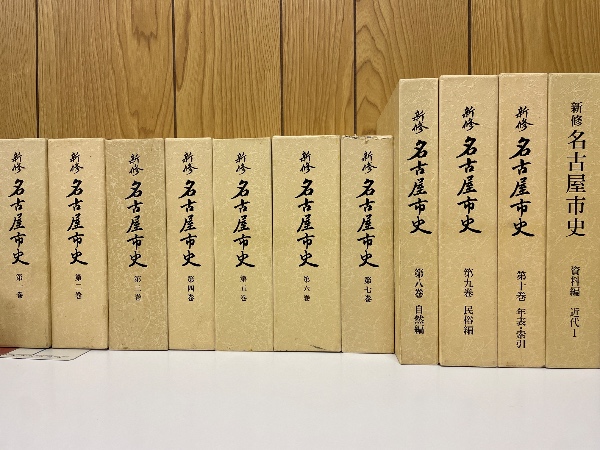 新修 名古屋市史 第一巻
新修 名古屋市史 第二巻
新修 名古屋市史 第三巻
新修 名古屋市史 第四巻
新修 名古屋市史 第五巻
新修 名古屋市史 第六巻
新修 名古屋市史 第七巻
新修 名古屋市史 第八巻 自然編
新修 名古屋市史 第九巻 民俗編
新修 名古屋市史 第十巻 年表・索引
新修 名古屋市史 資料編 近代1